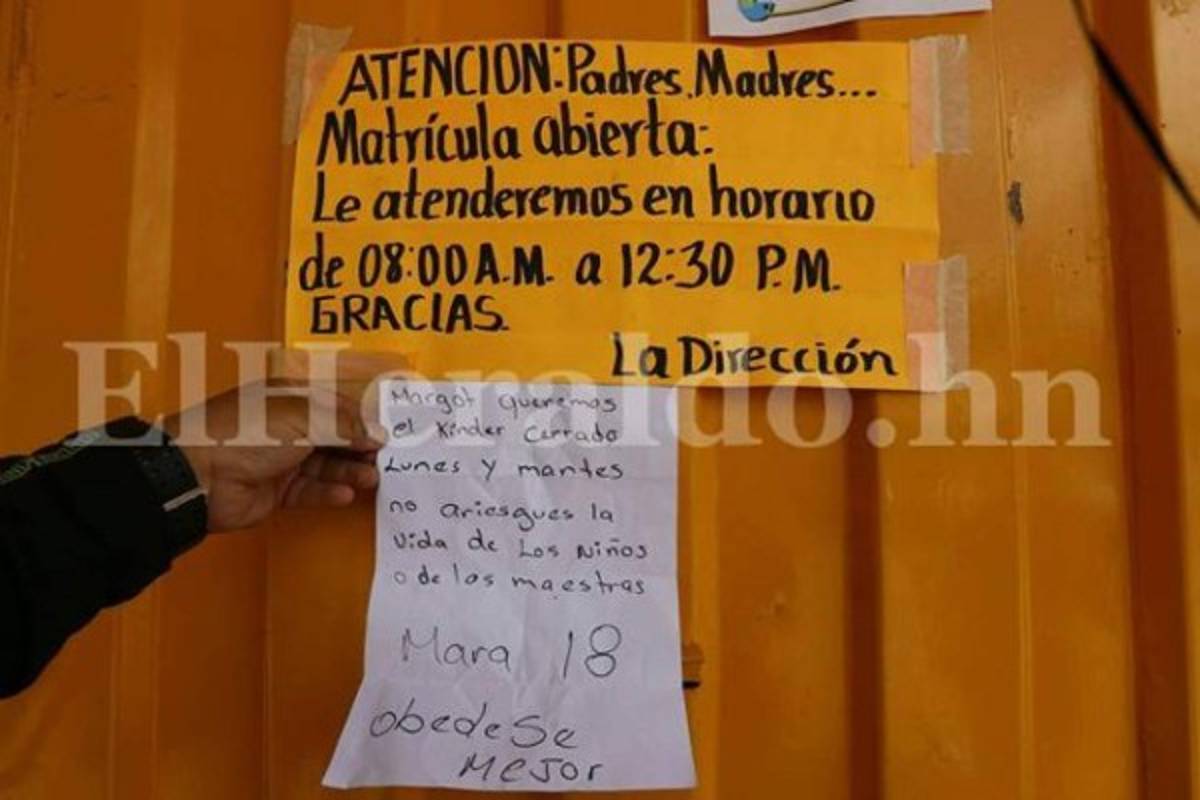 ATENCION: Padres, Madres...
Matrícula abierta:
Le atenderemos en horario
de 08:00 A.M. a 12:30 P.M.
GRACIAS.
La Dirección
ElHeraldo.hn
Margot queremos
el Kinder Cerrado
Lunes y mantes
no ariesgues la
vida de Los Niños
o de las maestras
Mara 18
obedese
MeJor